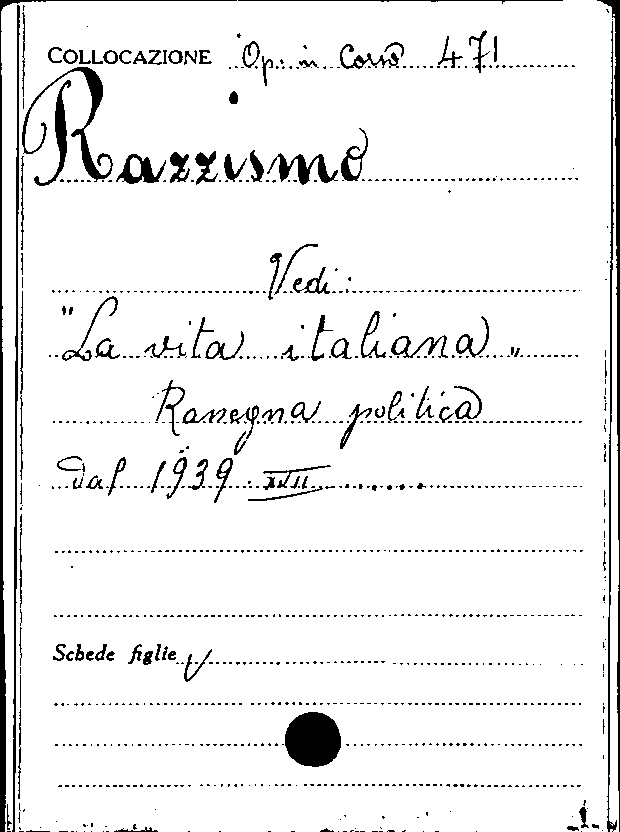 COLLOCAZIONE Op. in Corso 471
Razzismo
Vedi:
"La vita italiana„
Rassegna politica
dal 1939 XVII ......
Schede figlie